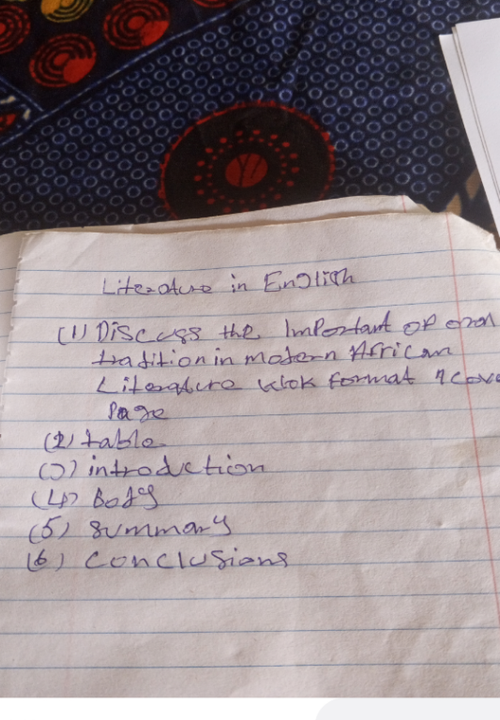 Literature in English
(1) Discuss the Important of oral
tradition in modern African
Literature work format 1 cover
Page
(2) table
(3) introduction
(4) Body
(5) summary
(6) Conclusions